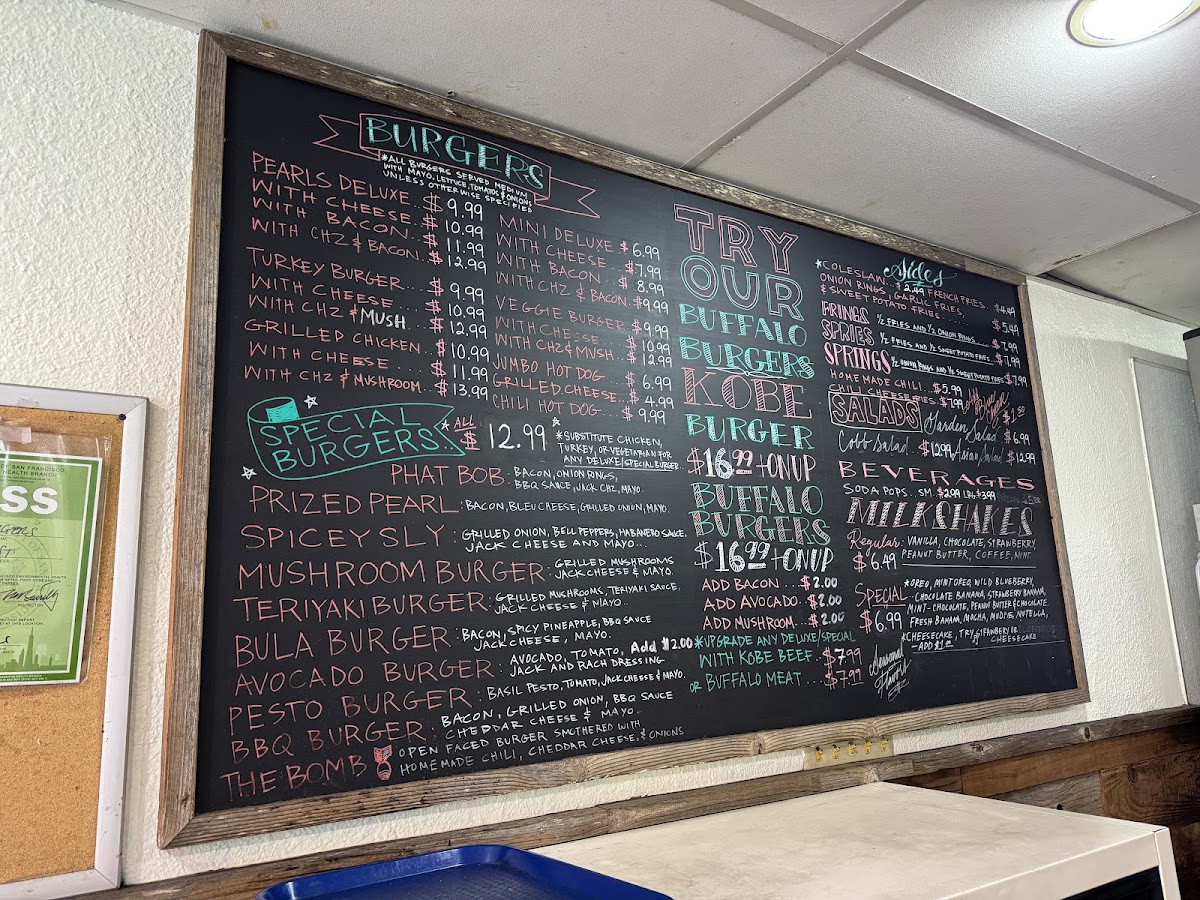 BURGERS
*ALL BURGERS SERVED MEDIUM
WITH MAYO, LETTUCE, TOMATOS & ONIONS
UNLESS OTHERWISE SPECIFIED
PEARLS DELUXE..$9.99
WITH CHEESE...$10.99
WITH BACON..$11.99
WITH CHZ & BACON.$12.99
TURKEY BURGER...$9.99
WITH CHEESE....$10.99
WITH CHZ & MUSH...$12.99
GRILLED CHICKEN..$10.99
WITH CHEESE....$11.99
WITH CHZ & MUSHROOM..$13.99
MINI DELUXE $6.99
WITH CHEESE..$7.99
WITH BACON...$8.99
WITH CHZ & BACON.$9.99
VEGGIE BURGER.$9.99
WITH CHEESE...$10.99
WITH CHZ & MUSH...$12.99
JUMBO HOT DOG...$6.99
GRILLED CHEESE..$4.99
CHILI HOT DOG...$9.99
SPECIAL
BURGERS!
*ALL
$12.99
*SUBSTITUTE CHICKEN,
TURKEY, OR VEGETARIAN FOR
ANY DELUXE/SPECIAL BURGER..
PHAT BOB: BACON, ONION RINGS,
BBQ SAUCE, JACK CHZ, MAYO.
PRIZED PEARL: BACON, BLEU CHEESE, GRILLED ONION, MAYO.
SPICEY SLY: GRILLED ONION, BELL PEPPERS, HABANERO SAUCE,
JACK CHEESE AND MAYO..
MUSHROOM BURGER: GRILLED MUSHROOMS
JACK CHEESE & MAYO.
TERIYAKI BURGER: GRILLED MUSHROOMS, TERIYAKI SAUCE,
JACK CHEESE & MAYO..
BULA BURGER: BACON, SPICY PINEAPPLE, BBQ SAUCE
JACK CHEESE, MAYO.
AVOCADO BURGER: AVOCADO, TOMATO, Add $2.00
JACK AND RACH DRESSING
PESTO BURGER: BASIL PESTO, TOMATO, JACK CHEESE & MAYO.
BBQ BURGER: BACON, GRILLED ONION, BBQ SAUCE
CHEDDAR CHEESE & MAYO..
THE BOMB OPEN FACED BURGER SMOTHERED WITH
HOMEMADE CHILI, CHEDDAR CHEESE, & ONIONS
TRY
OUR
BUFFALO
BURGERS
KOBE
BURGER
$16.99 + ON UP
BUFFALO
BURGERS
$16.99 + ON UP
ADD BACON...$2.00
ADD AVOCADO..$2.00
ADD MUSHROOM..$2.00
*UPGRADE ANY DELUXE/SPECIAL
WITH KOBE BEEF..$7.99
OR BUFFALO MEAT...$7.99
Sides
*COLESLAW $2.49 FRENCH FRIES..$4.49
ONION RINGS, GARLIC FRIES,
& SWEET POTATO FRIES....$5.49
FRINGS ½ FRIES AND ½ ONION RINGS....$7.99
SPRIES ½ FRIES AND ½ SWEET POTATO FRIES..$7.99
SPRINGS ½ ONION RINGS AND ½ SWEET POTATO FRIES $7.99
HOME MADE CHILI..$5.99
CHILI CHEESE FRIES.$7.99
$1.50
SALADS Garden Salad $6.99
Cobb Salad..$12.99 Asian Salad..$12.99
BEVERAGES
SODA POPS. SM. $2.99 LRG. $3.99
MILKSHAKES
Regular: VANILLA, CHOCOLATE, STRAWBERRY
$6.49 PEANUT BUTTER, COFFEE, MINT
Special $6.99
*OREO, MINT OREO, WILD BLUEBERRY,
CHOCOLATE BANANA, STRAWBERRY BANANA,
MINT-CHOCOLATE, PEANUT BUTTER & CHOCOLATE.
FRESH BANANA, MOCHA, MUDPIE, NUTELLA,
*CHEESECAKE, TRY
CHEESECAKE
-ADD $1.00
Seasonal
Flavors
SAN FRANCISCO
HEALTH BRANCH
SS